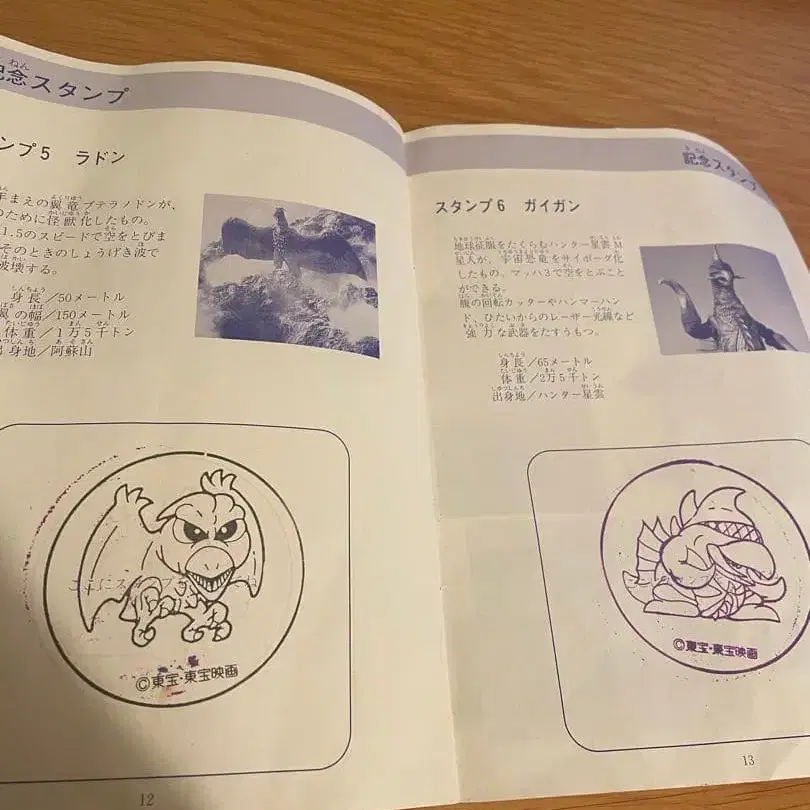 記念スタンプ
ンプ5 ラドン
年まえの翼竜プテラノドンが、
のために怪獣化したもの。
1.5のスピードで空をとびま
そのときのしょうげき波で
破壊する。
身長/50メートル
翼の幅/150メートル
体重/1万5千トン
出身地/阿蘇山
ここにスタンプ
©東宝・東宝映画
12
記念スタンプ
スタンプ6 ガイガン
地球征服をたくらむハンター星雲M
星人が、宇宙恐竜をサイボーグ化
したもの。マッハ3で空をとぶこと
ができる。
腹の回転カッターやハンマーハン
ド、ひたいからのレーザー光線など
強力な武器をたすうもつ。
身長/65メートル
体重/2万5千トン
出身地/ハンター星雲
©東宝・東宝映画
13